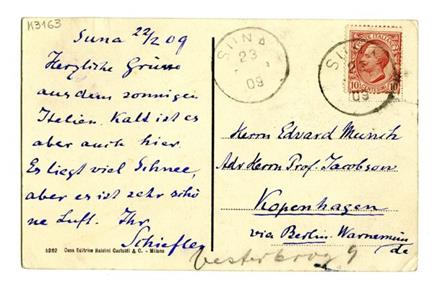 K3163
Suna 22/2 09
Herzliche Grüsse
aus dem sonnigen
Italien. Kald ist es
aber auch hier.
Es liegt viel Schnee,
aber es ist sehr schö
ne Luft. Ihr
Schiefler
5260 Casa Editrice Baldini Castoldi & C. - Milano
SUNA
23
09
POSTE ITALIANE
10 10
SUNA
09
Herrn Edvard Munch
Adr Herrn Prof. Jacobson
Kopenhagen
via Berlin-Warnemün
de
Vesterbrog 9